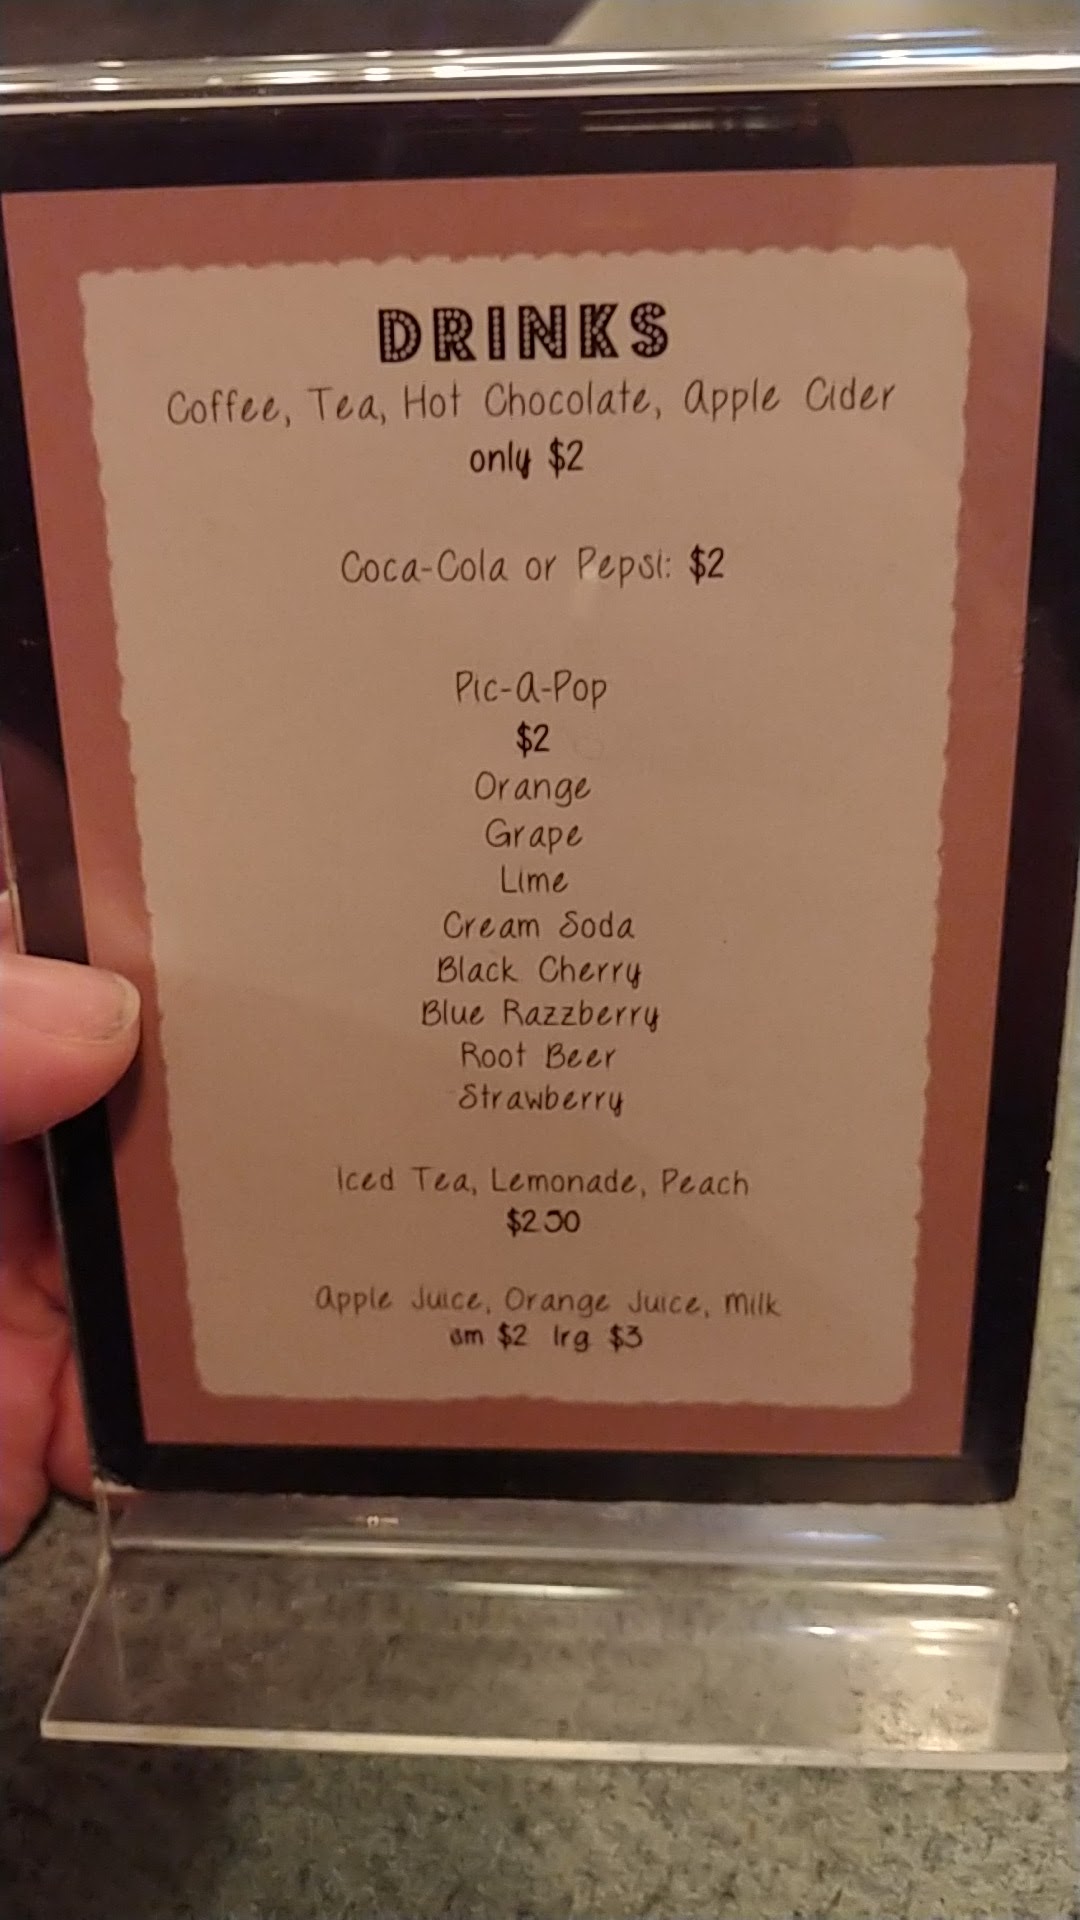 DRINKS
Coffee, Tea, Hot Chocolate, Apple Cider
only $2
Coca-Cola or Pepsi: $2
Pic-A-Pop
$2
Orange
Grape
Lime
Cream Soda
Black Cherry
Blue Razzberry
Root Beer
Strawberry
Iced Tea, Lemonade, Peach
$2.50
Apple Juice, Orange Juice, Milk
sm $2 lrg $3